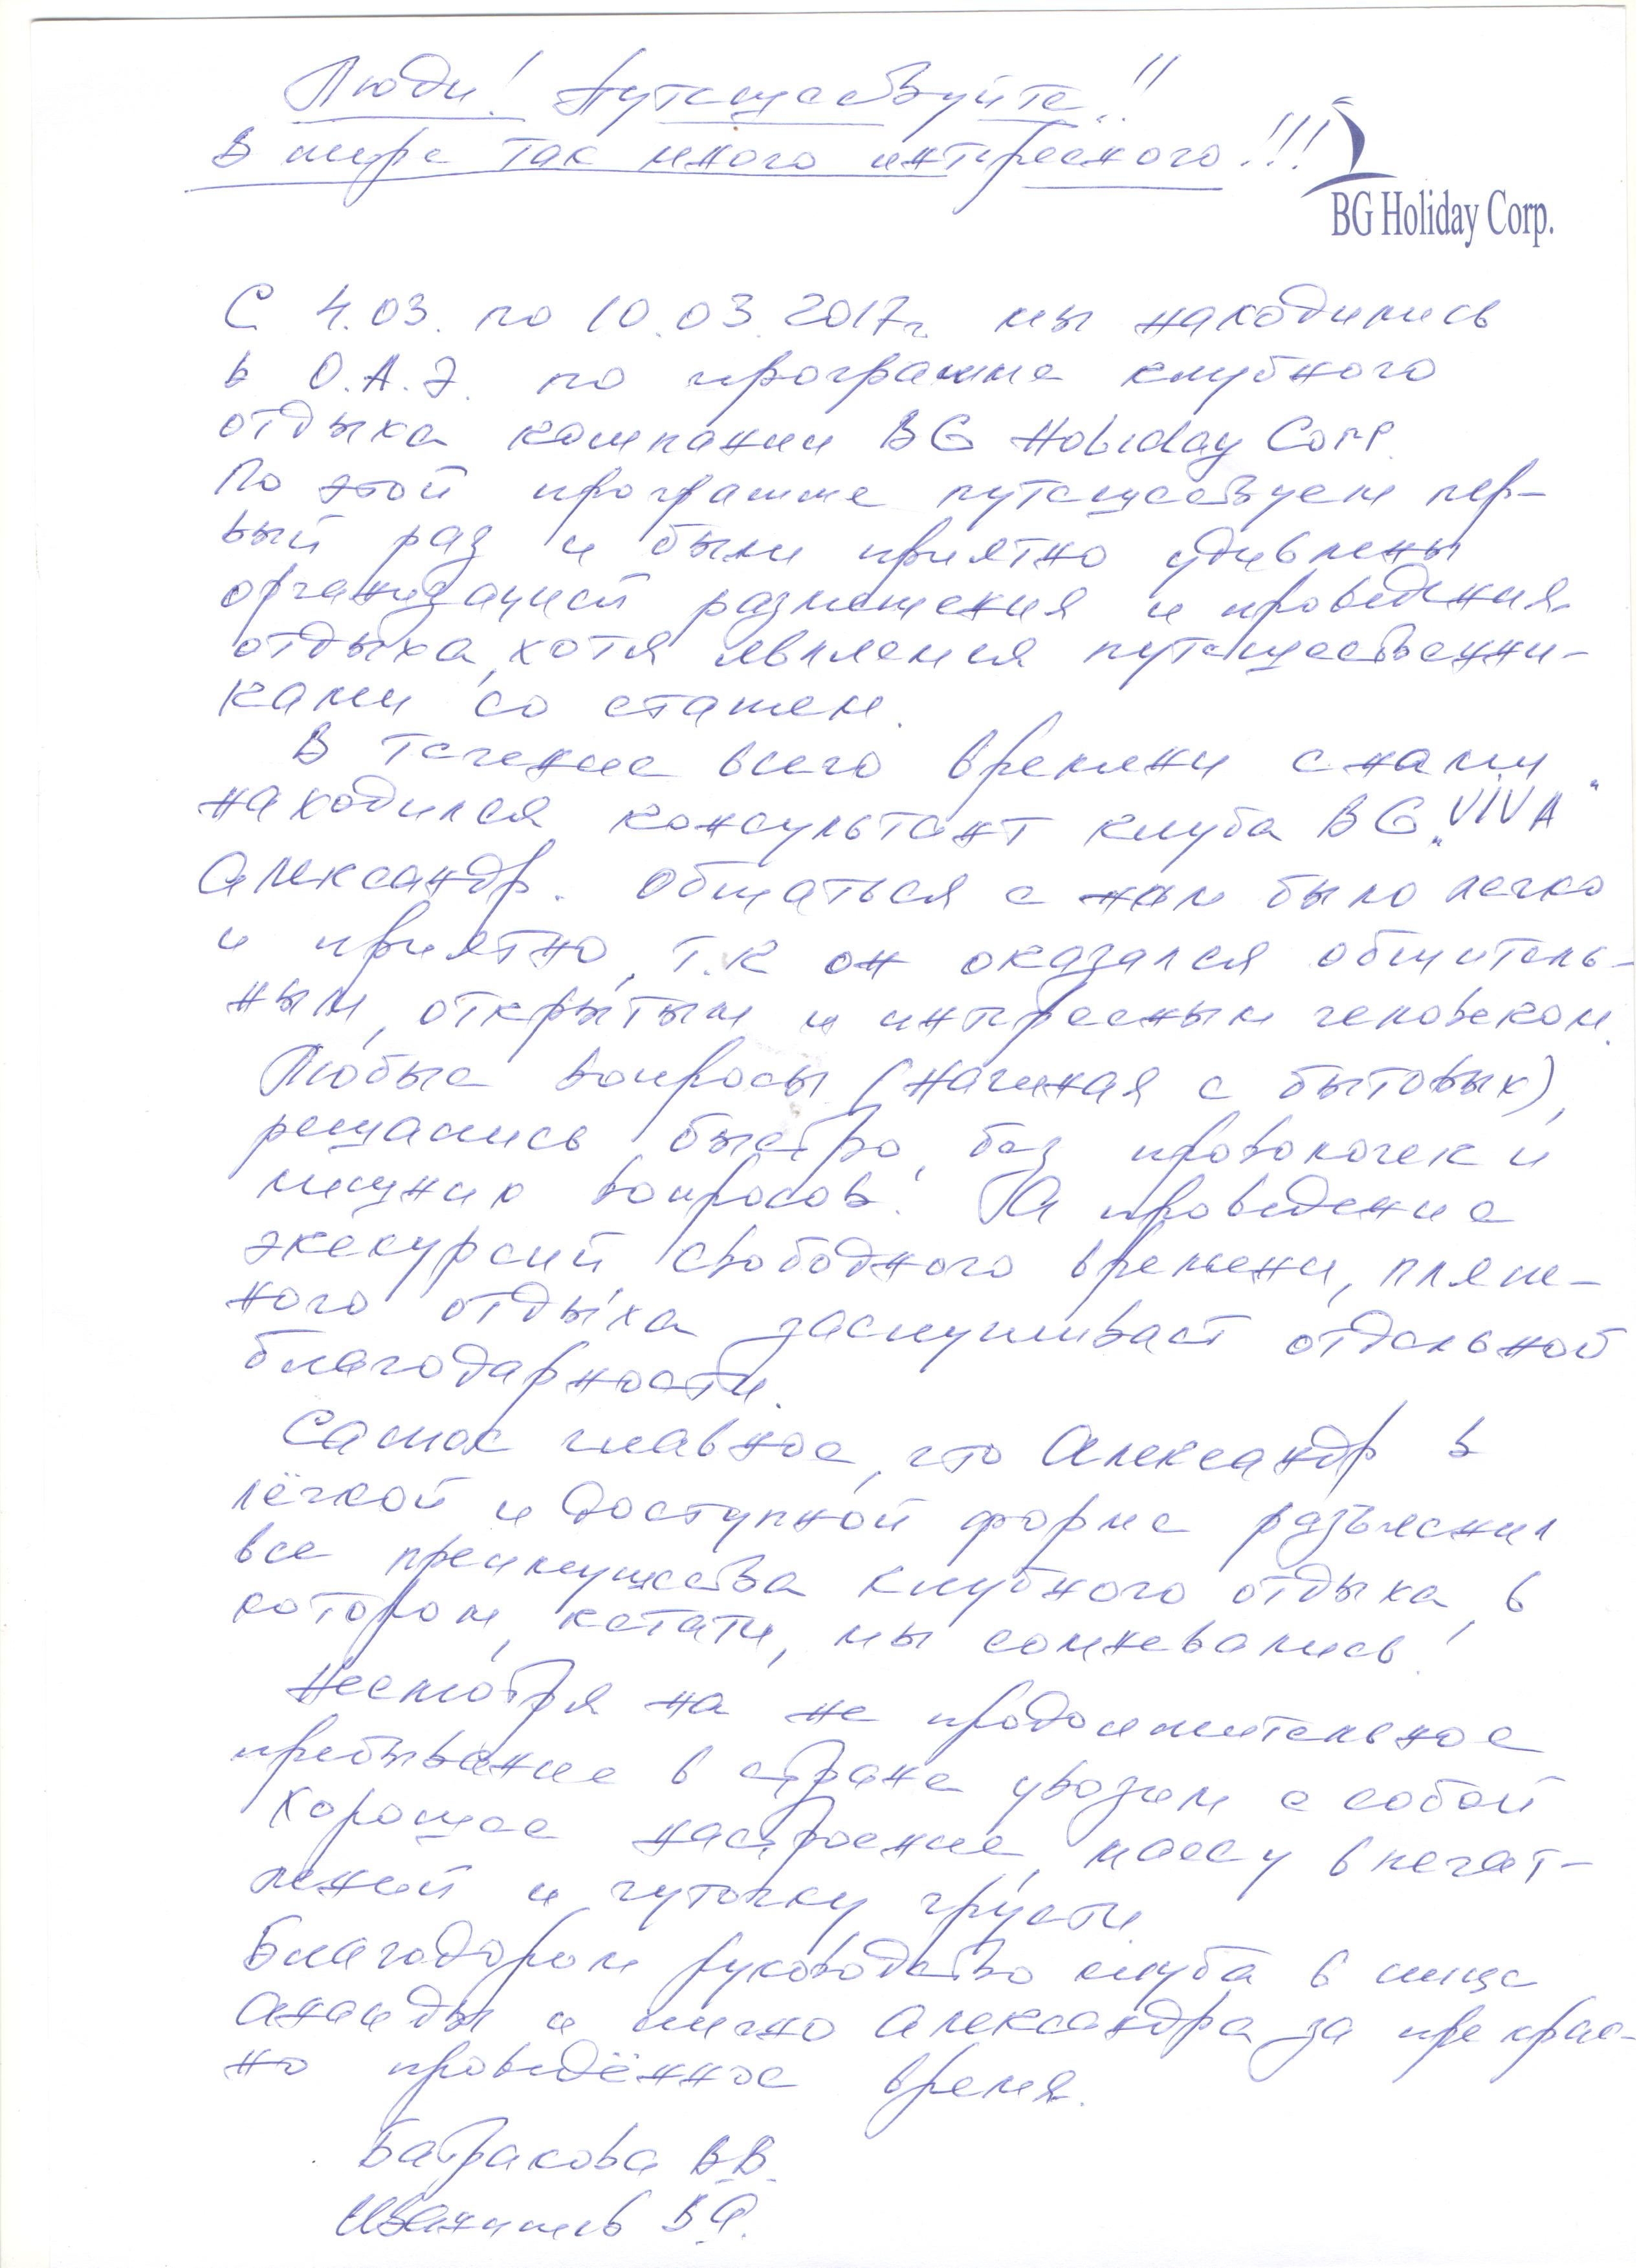 Люди! Путешествуйте!!
В мире так много интересного!!!
BG Holiday Corp.
С 4.03. по 10.03.2017г. мы находились
в О.А.Э. по программе клубного
отдыха компании BG Holiday Corp.
По этой программе путешествуем пер-
вый раз и были приятно удивлены
организацией размещения и проведения
отдыха, хотя являемся путешественни-
ками со стажем.
В течение всего времени с нами
находился консультант клуба BG „VIVA"
Александр. Общаться с ним было легко
и приятно, т.к он оказался общитель-
ным, открытым и интересным человеком.
Любые вопросы (начиная с бытовых),
решались быстро, без проволочек и
лишних вопросов! А проведение
экскурсий, свободного времени, пляж-
ного отдыха заслуживает отдельной
благодарности.
Самое главное, что Александр в
лёгкой и доступной форме разъяснил
все преимущества клубного отдыха, в
котором, кстати, мы сомневались!
Несмотря на не продолжительное
пребывание в стране увозим с собой
хорошее настроение, массу впечат-
лений и чуточку грусти.
Благодарим руководство клуба в лице
и лично Александра за прекрас-
но проведённое время.
Батракова В.В.
В.А.